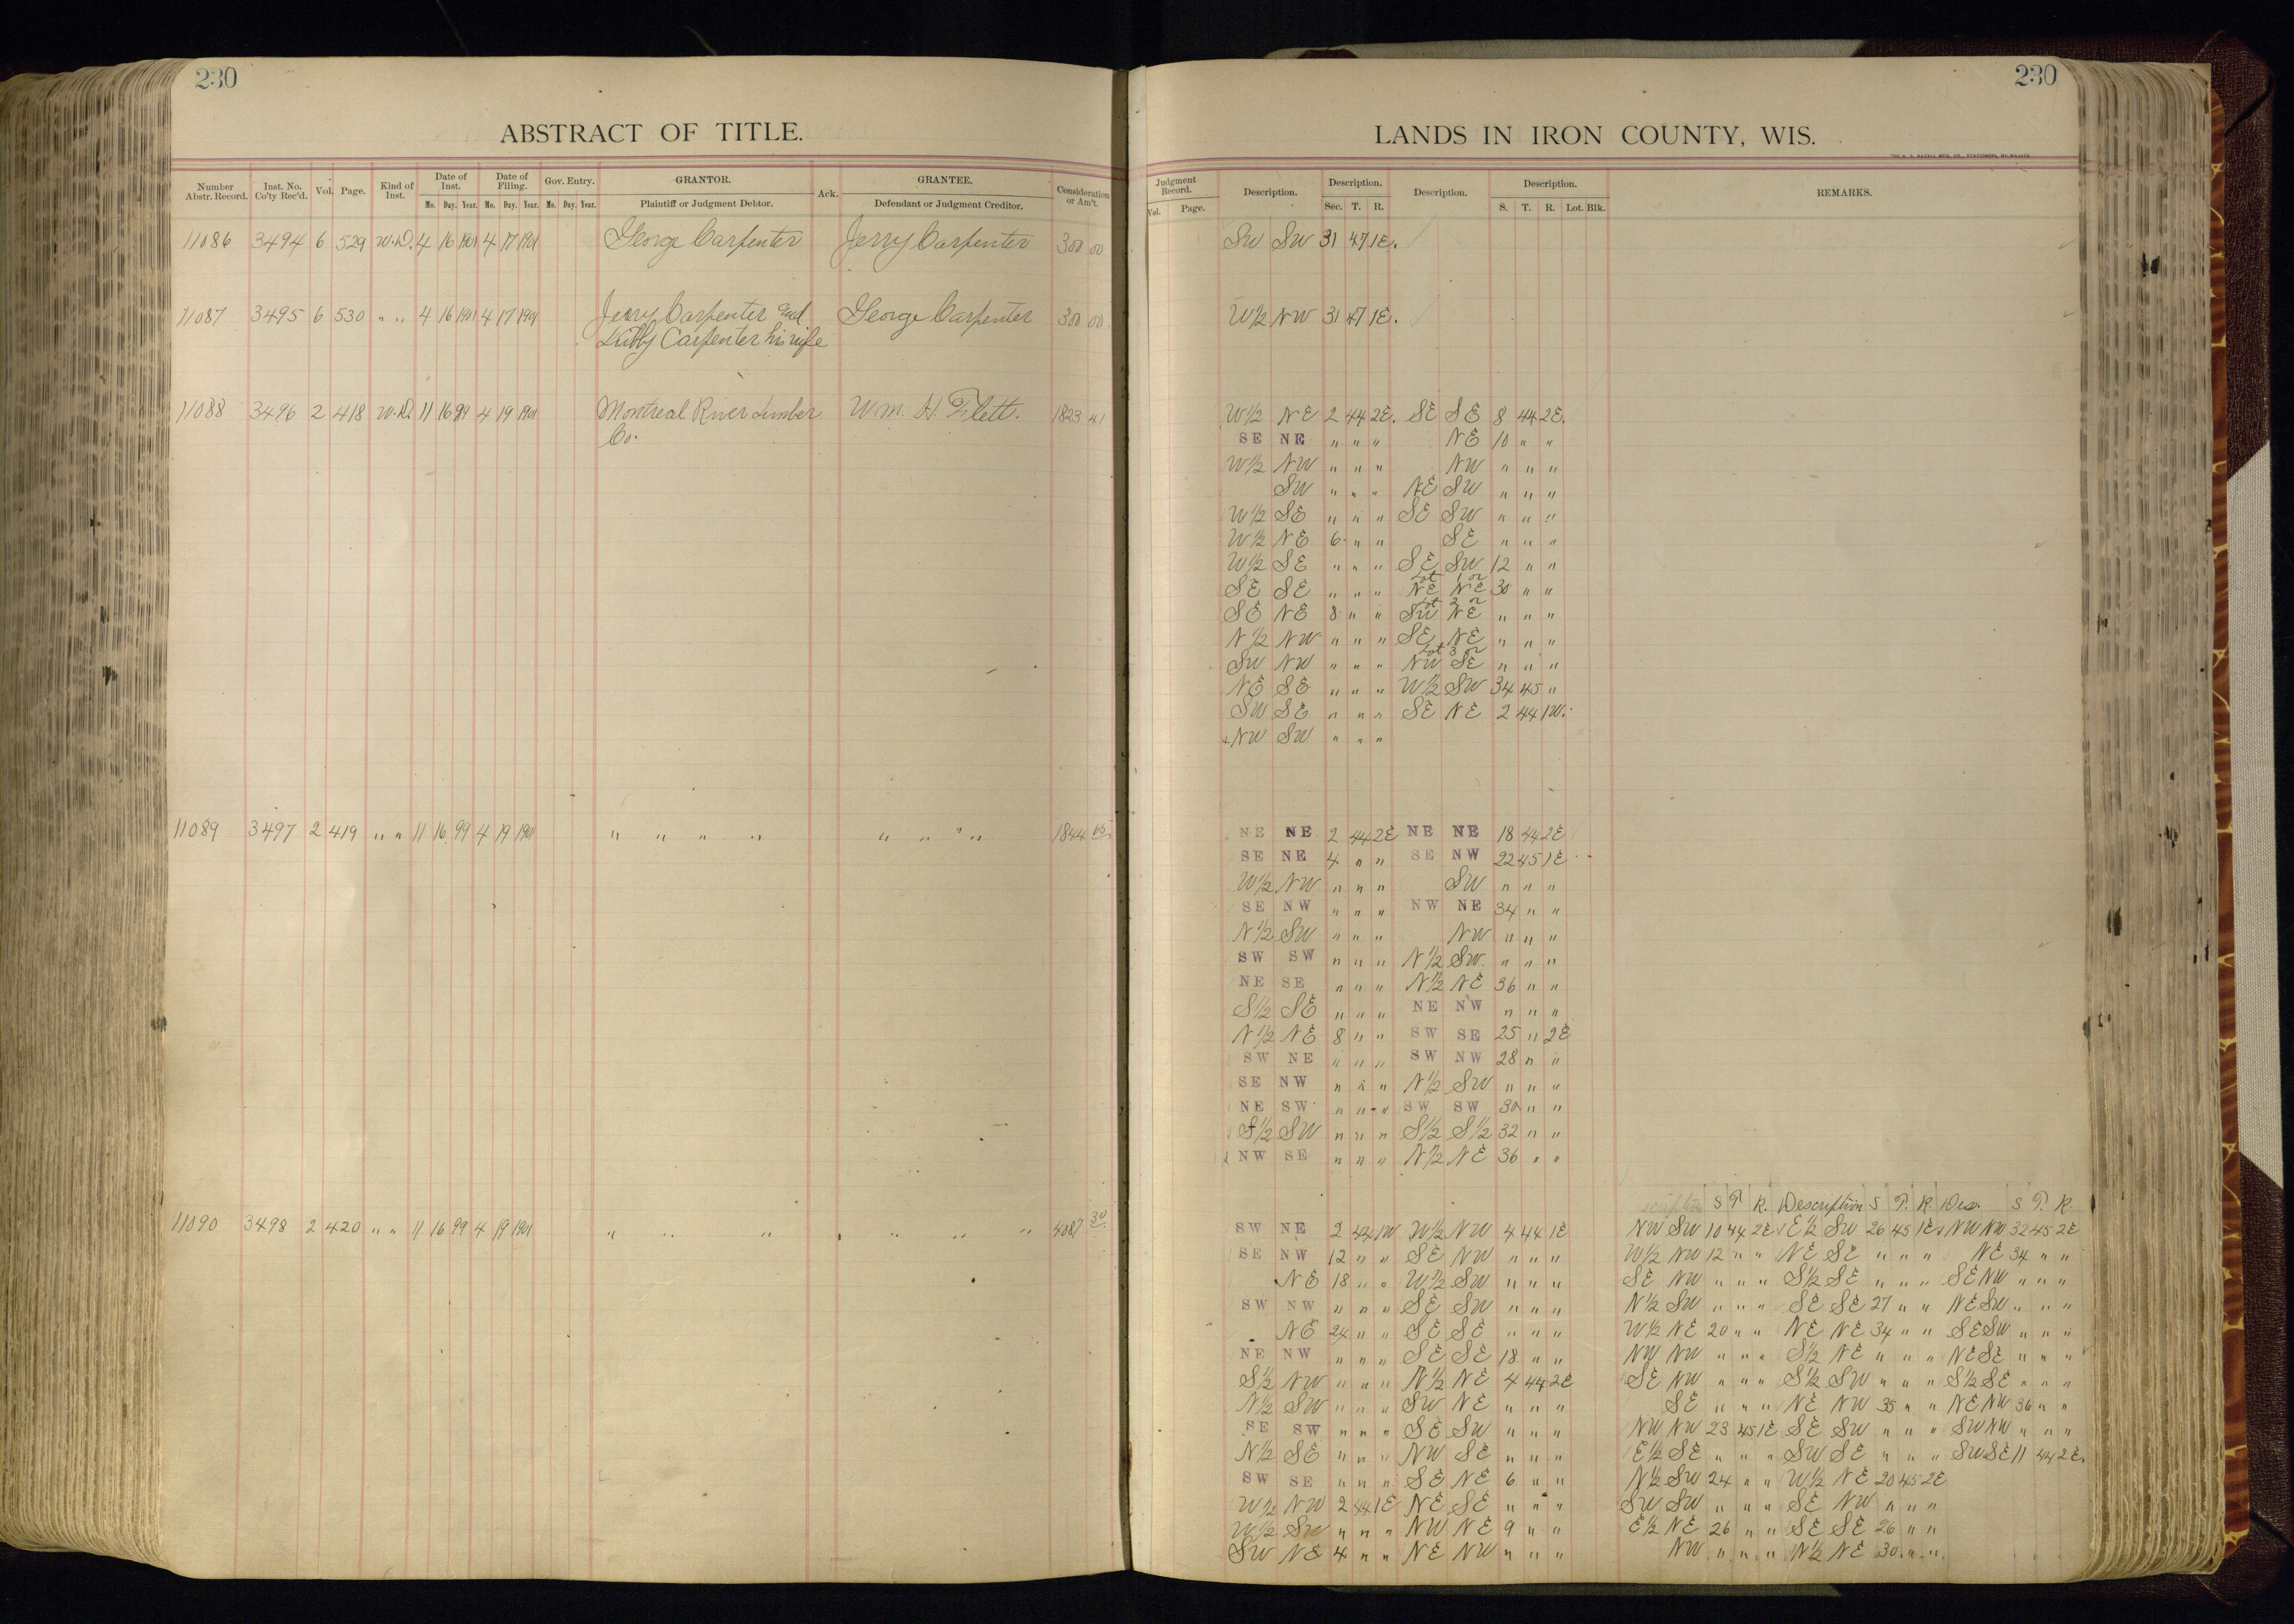 230
ABSTRACT OF TITLE.
Number Abstr. Record. Inst. No. Co'ty Rec'd. Vol. Page. Kind of Inst. Date of Inst. Mo. Day. Year. Date of Filing. Mo. Day. Year. Gov. Entry. Mo. Day. Year. GRANTOR. Plaintiff or Judgment Debtor. Ack. GRANTEE. Defendant or Judgment Creditor. Consideration or Am't.
11086 3494 6 529 W.D. 4 16 1901 4 17 1901 George Carpenter Jerry Carpenter 300 00
11087 3495 6 530 " " 4 16 1901 4 17 1901 Jerry Carpenter and George Carpenter 300 00
Libby Carpenter his wife
11088 3496 2 418 W.D. 11 16 99 4 19 1901 Montreal River Lumber Wm. H. Flett. 1823 41
Co.
11089 3497 2 419 " " 11 16 99 4 19 1901 " " " " " " " " 1844 65
11090 3498 2 420 " " 11 16 99 4 19 1901 " " " " " " 4087 30
230
LANDS IN IRON COUNTY, WIS.
Judgment Record. Vol. Page. Description. Description. Sec. T. R. Description. Description. S. T. R. Lot. Blk. REMARKS.
SW SW 31 47 1E.
W½ NW 31 47 1E.
W½ NE 2 44 2E. SE SE 8 44 2E.
SE NE " " " NE 10 " "
W½ NW " " " NW " " "
SW " " " NE SW " " "
W½ SE " " " SE SW " " "
W½ NE 6 " " SE " " "
W½ SE " " " SE SW 12 " "
Lot 1 or
SE SE " " " NE NE 30 " "
Lot 2 or
SE NE 8 " " SW NE " " "
N½ NW " " " SE NE " " "
Lot 3 or
SW NW " " " NW SE " " "
NE SE " " " W½ SW 34 45 "
SW SE " " " SE NE 2 44 1W.
+NW SW " " "
NE NE 2 44 2E NE NE 18 44 2E
SE NE 4 " " SE NW 22 45 1E
W½ NW " " " SW " " "
SE NW " " " NW NE 34 " "
N½ SW " " " NW " " "
SW SW " " " N½ SW " " "
NE SE " " " N½ NE 36 " "
S½ SE " " " NE NW " " "
N½ NE 8 " " SW SE 25 " 2E
SW NE " " " SW NW 28 " "
SE NW " " " N½ SW " " "
NE SW " " " SW SW 30 " "
S½ SW " " " S½ S½ 32 " "
NW SE " " " N½ NE 36 " "
S T. R. Description S T. R. Des. S T. R.
SW NE 2 44 1W W½ NW 4 44 1E NW SW 10 44 2E E½ SW 26 45 1E NW NW 32 45 2E
SE NW 12 " " SE NW " " " W½ NW 12 " " NE SE " " " NE 34 " "
NE 18 " " W½ SW " " " SE NW " " " S½ SE " " " SE NW " " "
SW NW " " " SE SW " " " N½ SW " " " SE SE 27 " " NE SW " " "
NE 24 " " SE SE " " " W½ NE 20 " " NE NE 34 " " SE SW " " "
NE NW " " " SE SE 18 " " NW NW " " " S½ NE " " " NE SE " " "
S½ NW " " " N½ NE 4 44 2E SE NW " " " S½ SW " " " S½ SE " " "
N½ SW " " " SW NE " " " SE " " " NE NW 35 " " NE NW 36 " "
SE SW " " " SE SW " " " NW NW 23 45 1E SE SW " " " SW NW " " "
N½ SE " " " NW SE " " " E½ SE " " " SW SE " " " SW SE 11 44 2E.
SW SE " " " SE NE 6 " " N½ SW 24 " " W½ NE 20 45 2E
W½ NW 2 44 1E NE SE " " " SW SW " " " SE NW " " "
W½ SW " " " NW NE 9 " " E½ NE 26 " " SE SE 26 " "
SW NE 4 " " NE NW " " " NW " " " N½ NE 30 " "